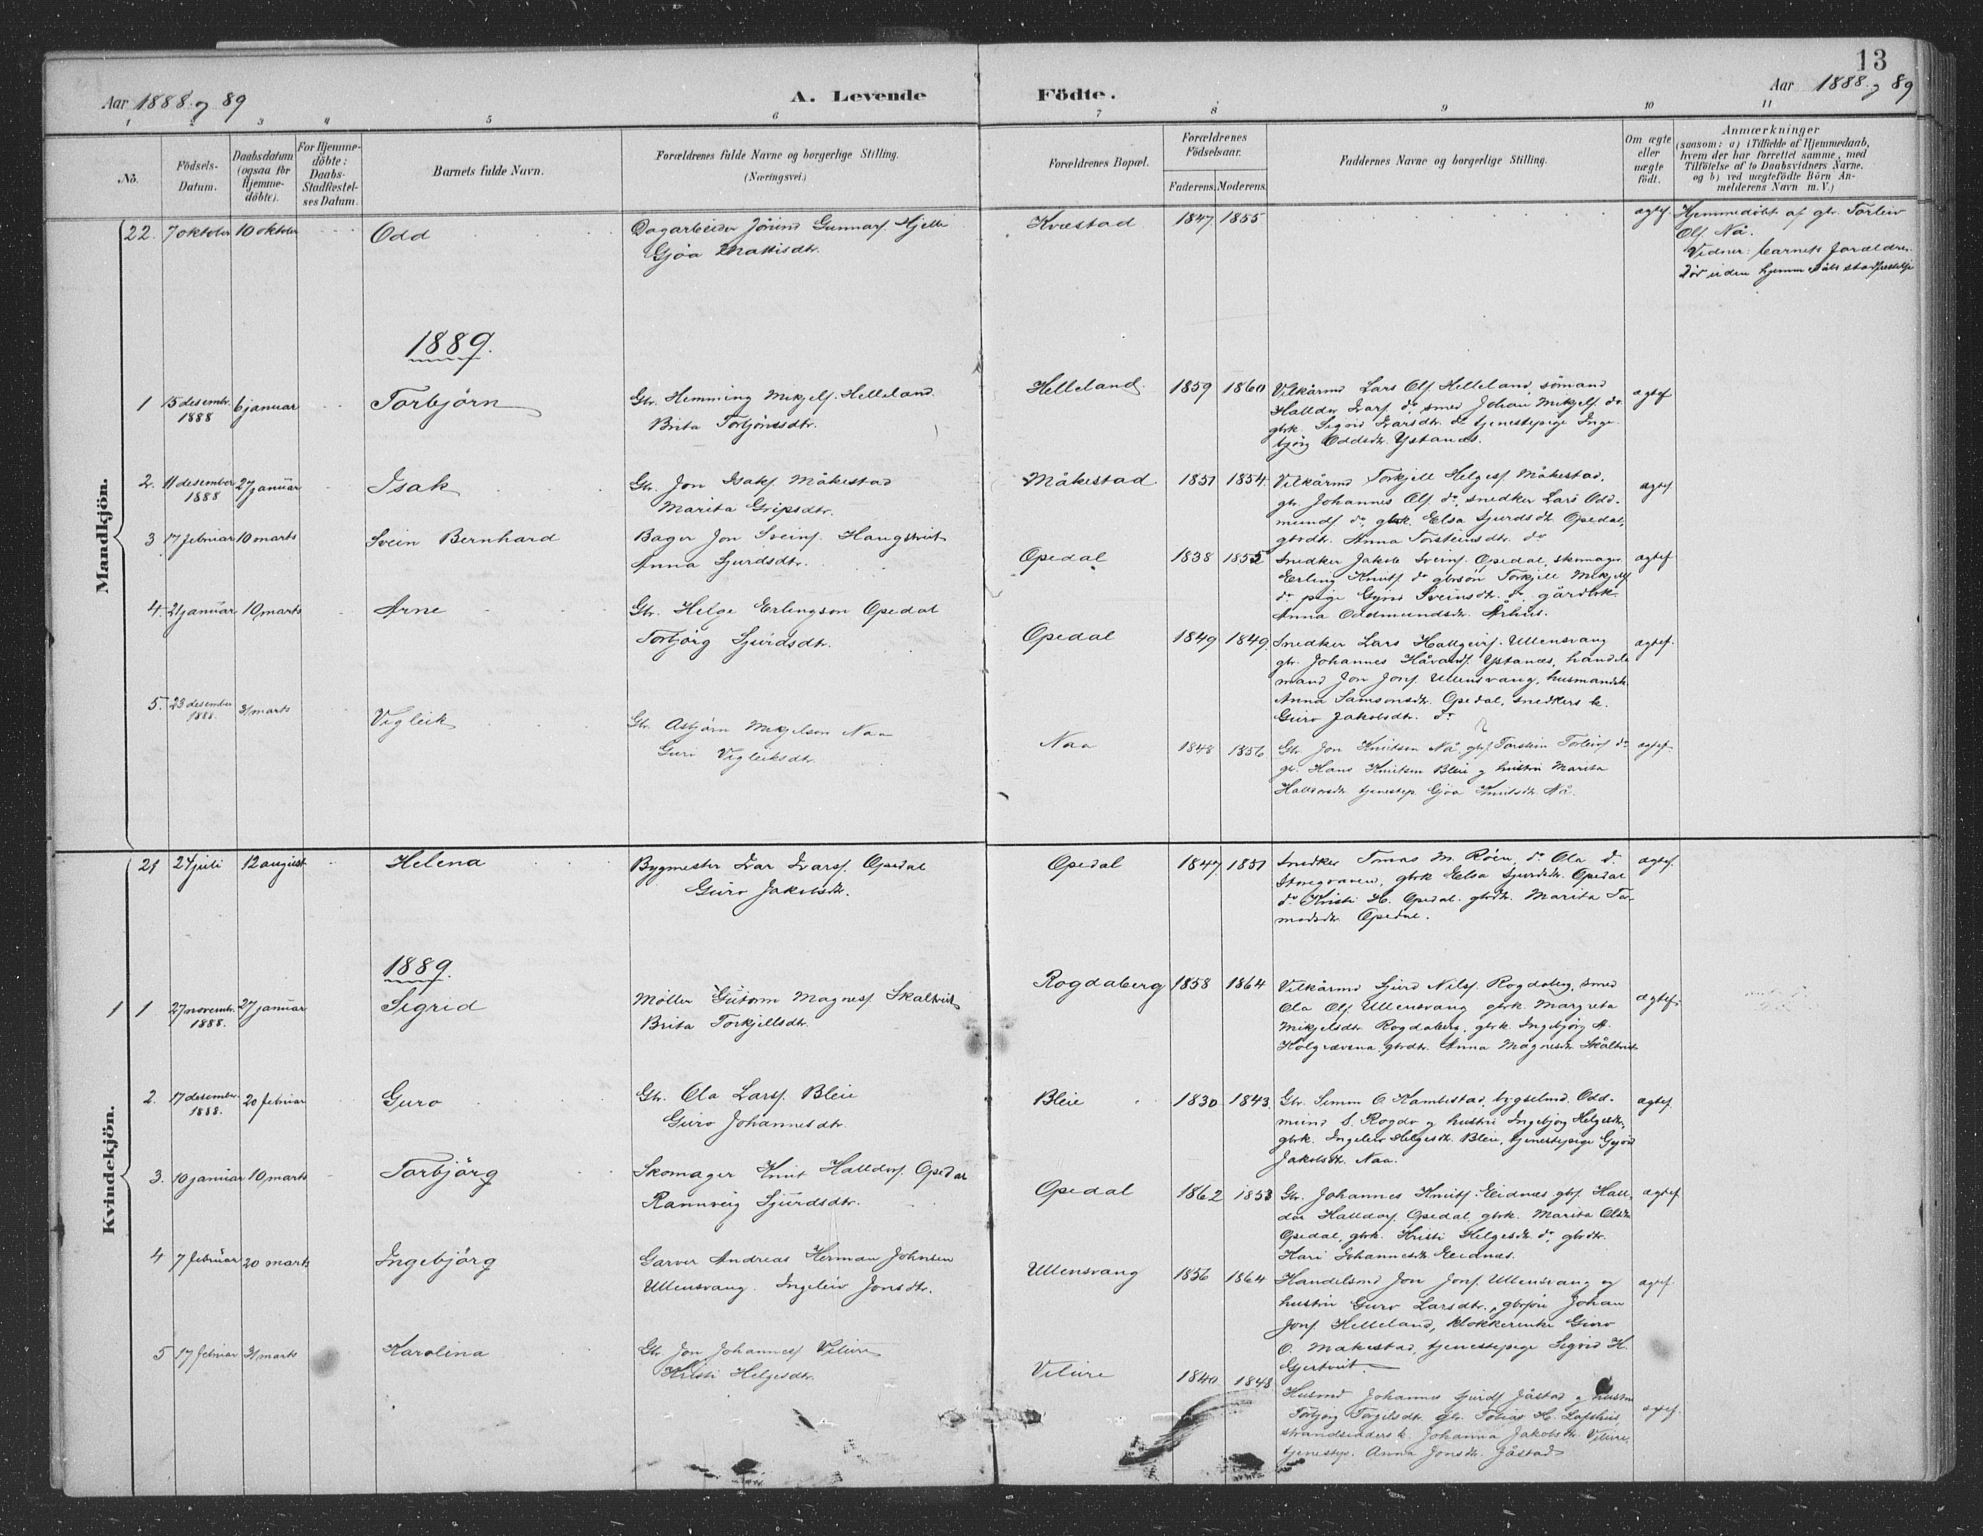 13
Aar 1888 og 89
A. Levende Födte.
Aar 1888 og 89
1 2 3 4 5 6 7 8 9 10 11
No.
Födsels-
Datum.
Daabsdatum
(ogsaa for
Hjemme-
döbte).
For Hjemme-
döbte:
Daabs-
Stadfæstel-
ses Datum.
Barnets fulde Navn.
Forældrenes fulde Navne og borgerlige Stilling.
(Næringsvei.)
Forældrenes Bopæl.
Forældrenes
Födselsaar.
Faderens. Moderens.
Faddernes Navne og borgerlige Stilling.
Om ægte
eller
uægte
födt.
Anmærkninger
(saasom: a) i Tilfælde af Hjemmedaab,
hvem der har forrettet samme, med
Tilföielse af to Daabsvidners Navne.
og b) ved uægtefödte Börn An-
melderens Navn m. V.)
Mandkjön.
22. 7 oktober 10 oktober Odd
Dagarbeider Jörund Gunnarf. Hjelle
Gjöa Mattisdtr.
Kvestad 1847 1855 ægtef.
Hjemmedöbt af gbr. Torleiv
Olf. Nå.
Vidner: barnets forældre.
Död uden hjemmedåbs stadfæstelse
1889.
1 15 desembr. 1888 6 januar Torbjörn
Gbr. Hemming Mikjelf. Helleland
Brita Torbjörnsdtr.
Helleland 1859 1860 ægtef
Vilkårmd Lars Olf. Helleland, sömand
Halldor Ivarf. do smed Johan Mikjelf. do.
gbrk. Sigrid Ivarsdtr. do tjenestepige Inge-
björg Oddsdtr. Ystanæs.
2. 11 desember 1888 27 januar Isak
Gbr. Jon Isakf. Måkestad
Marita Gripsdtr.
Måkestad 1851 1854 ægtef
Vilkårmd Torkjell Helgesf. Måkestad,
gbr. Johannes Olf. do, snedker Lars Odd-
mundf. do, gbrk. Elsa Sjurdsdtr. Opedal,
gbrdtr. Anna Torsteinsdtr. do
3 17 februar 10 marts Svein Bernhard
Bager Jon Sveinf. Haugstveit
Anna Sjurdsdtr.
Opedal 1838 1855 ægtef
Snedker Jakob Sveinf. Opedal, skomager
Erling Knutf. do gbrsön Torkjell Mikjelf
do pige Gyrid Sveinsdtr. do, gårdbrk.
Anna Oddmundsdtr. Århus.
4. 21 januar 10 marts Arne
Gbr. Helge Erlingson Opedal
Torbjörg Sjurdsdtr.
Opedal 1849 1849 ægtef.
Snedker Lars Hallgeirf. Ullensvang
gbr. Johannes Håvardf. Ystanæs, handels
mand Jon Jonf. Ullensvang, husmandsk.
Anna Samsonsdtr. Opedal, snedkers k.
Guro Jakobsdtr. do
5. 23 desember 1888. 31 marts Vigleik
Gbr. Asbjörn Mikjelson Naa
Guri Vigleiksdtr.
Naa 1848 1856 ægtef.
Gbr. Jon Knudsen Nå, gbf. Torstein Torleivf. do
gbr. Hans Knutsen Bleie og hustru Marita
Hallvorsdtr. tjenestep. Gjöa Knutsdtr. Nå.
Kvindekjön.
21 24 juli 12 august Helena
Bygmester Ivar Ivarsf. Opedal
Guro Jakobsdtr.
Opedal 1847 1851 ægtef.
Snedker Tomas M. Röen, do Ola d.
gbrk Elsa Sjurdsdtr. Opedal
do Kristi H. Opedal, gbrdtr. Marita Tor-
modsdtr. Opedal.
1889.
1 1 27 novembr. 1888. 27 januar Sigrid
Möller Guttorm Magnesf. Skaltveit
Brita Torkjellsdtr.
Rogdaberg 1858 1864 ægtef.
Vilkårmd Sjurd Nilsf. Rogdaberg, smed
Ola Olf. Ullensvang gbrk Margreta
Mikjelsdtr. Rogdaberg, gbrk. Ingebjörg A.
gbrdtr. Anna Magnesdtr. Skåltveit
2. 17 desember. 1888. 20 februar Guro
Gbr. Ola Larsf. Bleie
Guro Johannesdtr.
Bleie 1830 1843 ægtef.
Gbr. Simon O Kambestad, bygselmd. Odd-
mund S. Rogde og hustru Ingebjörg Helgesdtr.,
gbrk. Ingeleiv Helgesdtr. Bleie, tjenestepige Gyrid
Jakobsdtr. Naa.
3. 10 januar 10 marts Torbjörg
Skomager Knut Halldorf. Opedal
Rannveig Sjurdsdtr.
Opedal 1862 1853 ægtef
Gbr. Johannes Knutf. Eidnæs, gbf. Hall-
dor Halldorf. Opedal, gbrk. Marita Olsdtr.
Opedal, gbrk. Kristi Helgesdtr. do, gbrdtr.
Kari Johannesdtr. Eidnæs.
4 7 februar 20 marts Ingebjörg
Garver Andreas Herman Johnsen
Ullensvang. Ingeleiv Jonsdtr.
Ullensvang 1856 1864 ægtef.
Handelsmd Jon Jonf. Ullensvang og
hustru Guro Larsdtr., gbrsön Johan
Jonf. Helleland, klokkerenke Guro
O. Måkestad, tjenestepige Sigrid H.
Gjertveit.
5 17 februar 31 marts Karolina
Gbr. Jon Johannesf. Vilure
Kristi Helgesdtr.
Vilure 1840 1848 ægtef.
Husmd Johannes Sjurdf. Jåstad og hustru
Torbjörg Torgilsdtr. gbr. Tobias H. Lofthus,
strandsidders k. Johanna Jakobsdtr. Vilure,
tjenestep. Anna Jonsdtr. Jåstad